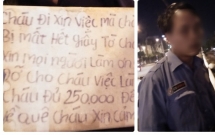 Cháu Đi xin việc mà Cháu
Bị mất Hết giấy Tờ Cháu
xin mọi người Làm ơn
Đỡ cho Cháu Việc Làm
Cháu Đủ 250.000 Để
Về quê Cháu Xin Cảm